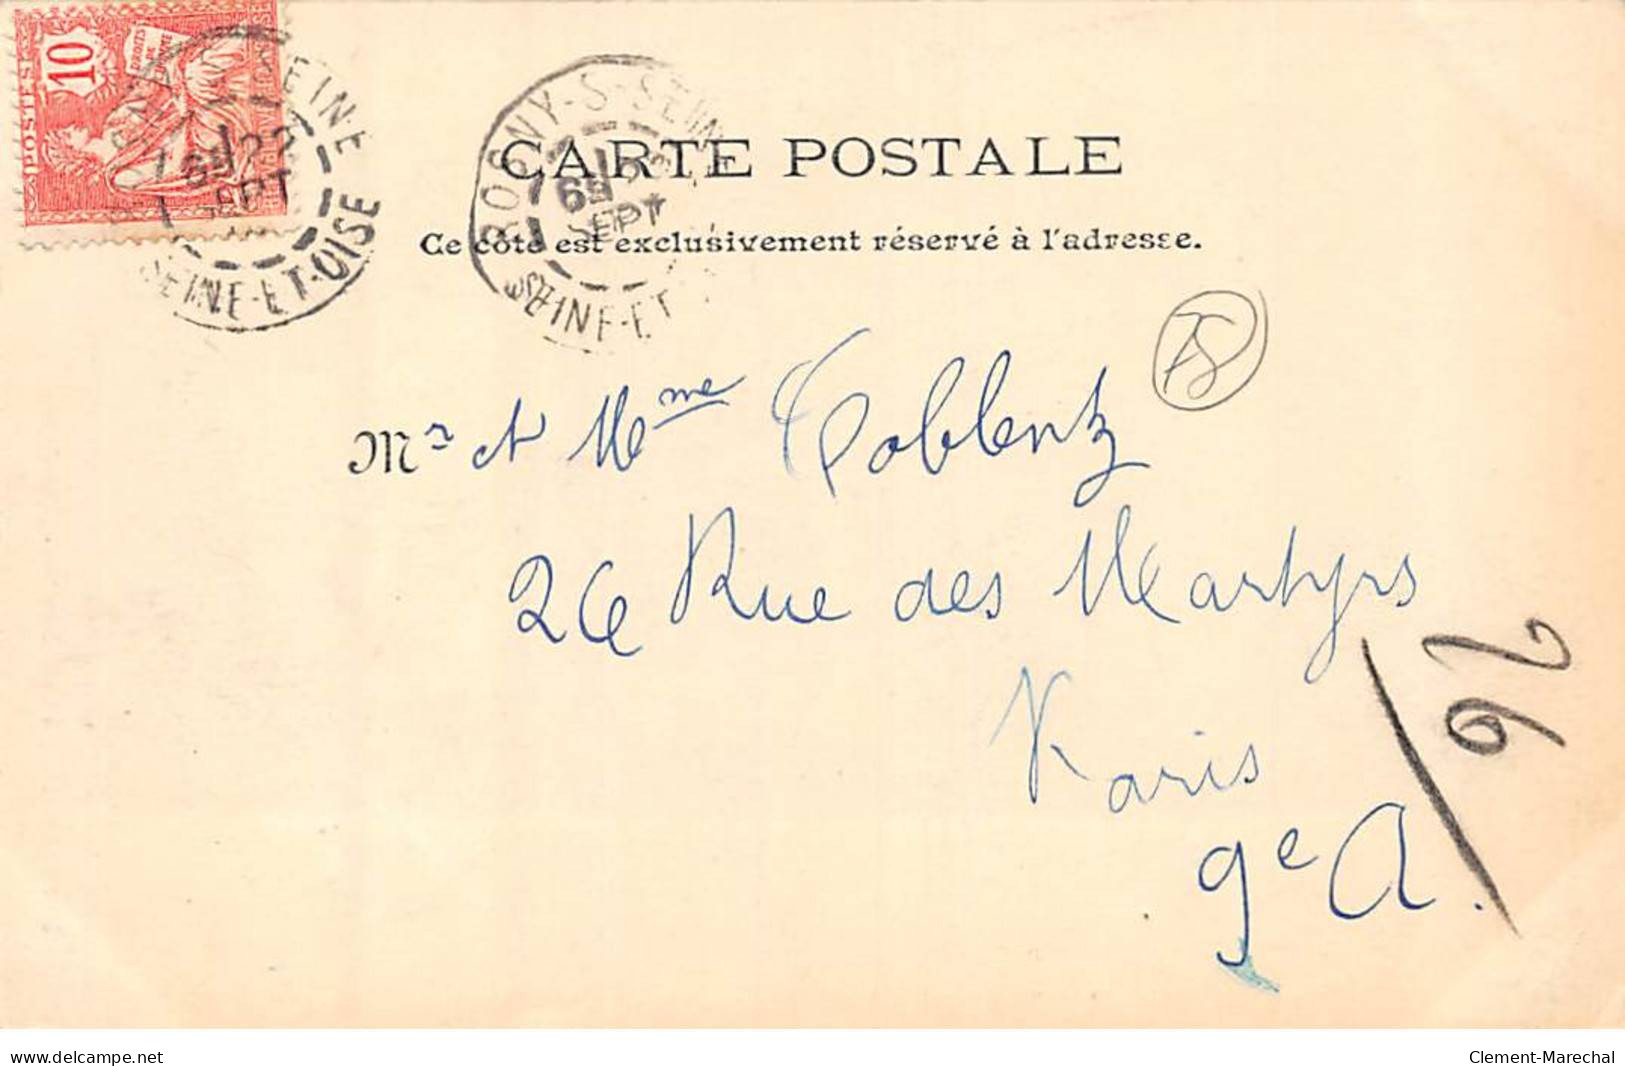 POSTES
10
DROITS DE L'HOMME
S-SEINE
22
SEPT
SEINE-ET-OISE
ROGNY-S-SEINE
6E
SEPT
SEINE-ET
CARTE POSTALE
Ce côté est exclusivement réservé à l'adresse.
Mr et Mme Coblentz
26 Rue des Martyrs
Paris
9e A.
26
delcampe.net
Clement-Marechal